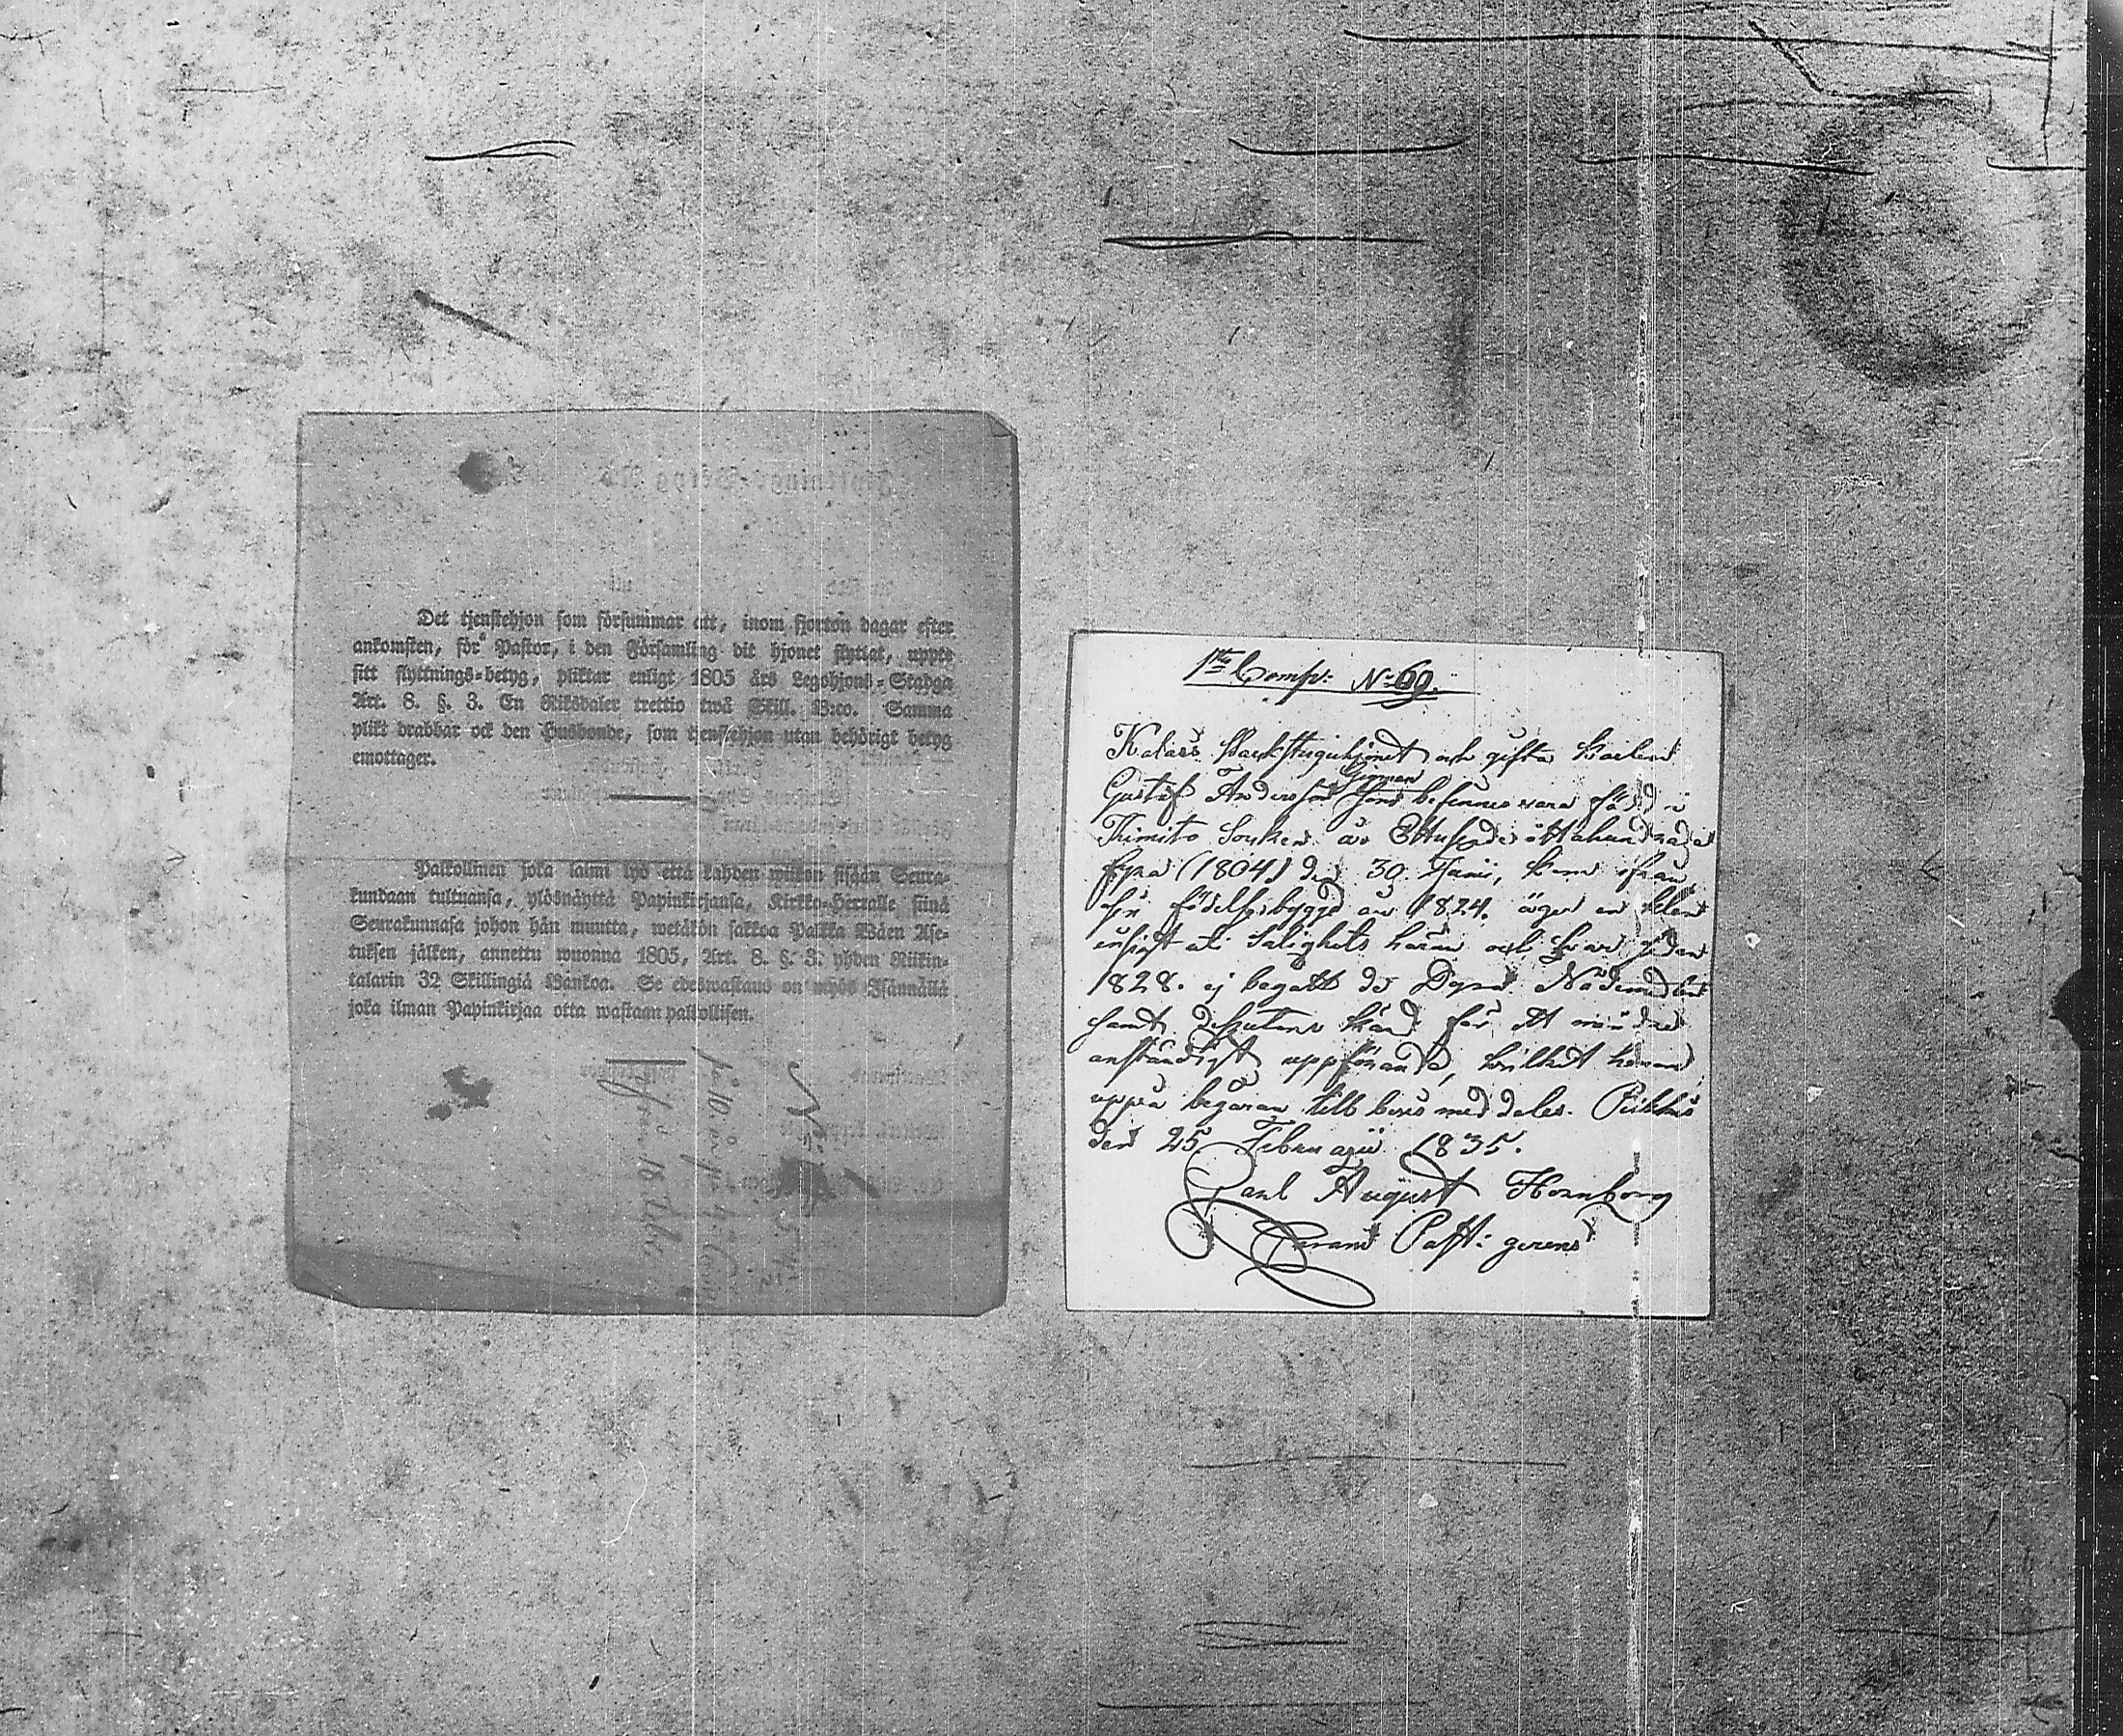 Det tjenstehjon som försummar att, inom fjorton dagar efter
ankomsten, för Pastor, i den Församling dit hjonet flyttat, uppte
sitt flyttnings-betyg, pliktar enligt 1805 års Legohjons-Stadga
Art. 8. §. 3. En Riksdaler trettio twå Skill. B:co. Samma
plikt drabbar ock den Husbonde, som tjenstehjon utan behörigt betyg
emottager.
Palkollinen joka laimi lyö että kahden wiikon sisään Seura-
kundaan tultuansa, ylösnäyttä Papinkirjansa, Kirkko-Herralle siinä
Seurakunnasa johon hän muutta, wetäkön sakkoa Palkka Wäen Ase-
tuksen jälken, annettu wuonna 1805, Art. 8. §. 3. yhden Riikin-
talarin 32 Skillingiä Bankoa. Se edeswastaus on myös Isännällä
joka ilman Papinkirjaa otta wastaan palkollisen.
1sta Comp: No 69.
Backstuguhjonet och gifta Karlen
Gustaf Andersson befinnes vara född i
Kimito Socken år Ettusende åttahundrade
fyra (1804) den 30 Junii, kom ifrån
sin födelsebygd år 1824. äger en klen
insigt uti Salighets läran och har sedan
1828. ej begått Nådemedlen
samt känd för ett mindre
anständigt uppförande, hvilket honom
uppå begäran till bevis meddelas. Pikkis
den 25 Februarii 1835.
Carl August Hornborg
Past: gerens